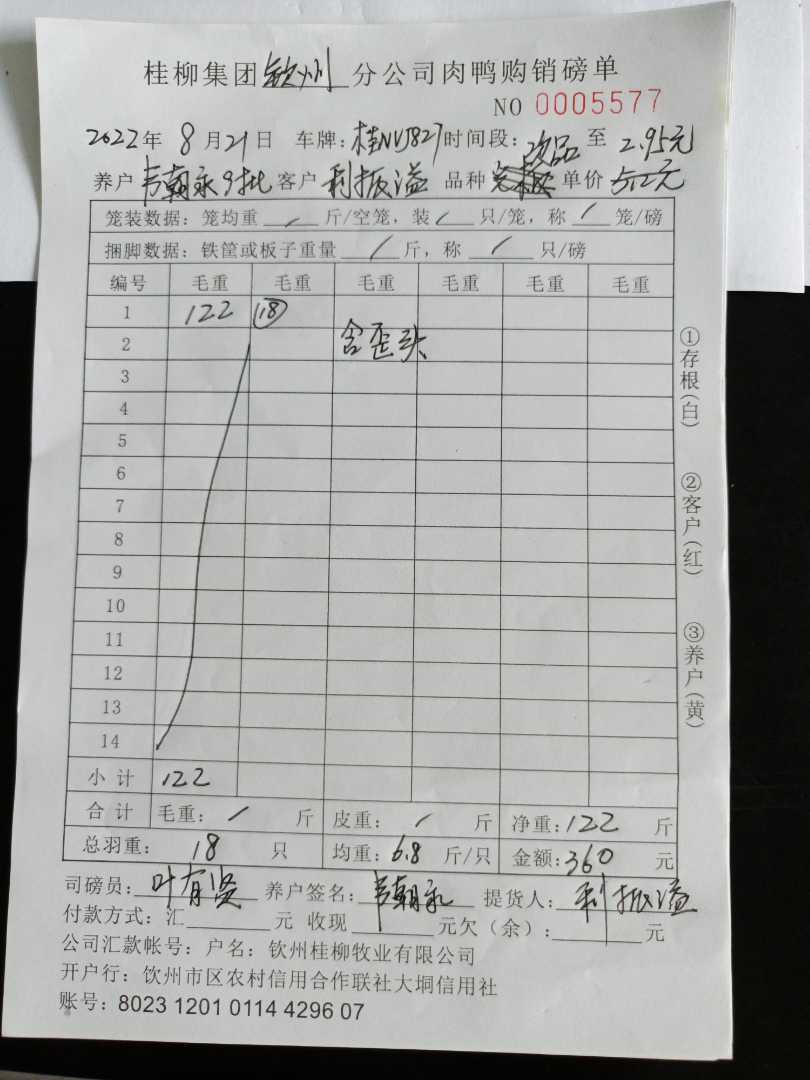 桂柳集团钦州分公司肉鸭购销磅单
NO 0005577
2022年8月21日 车牌:桂NVJ827 时间段:次品 至 2.95元
养户韦朝永9批 客户利振溢 品种 单价
笼装数据: 笼均重 / 斤/空笼, 装 / 只/笼, 称 / 笼/磅
捆脚数据: 铁筐或板子重量 / 斤, 称 / 只/磅
编号 毛重 毛重 毛重 毛重 毛重 毛重
1 122 18
2 含歪头
3
4
5
6
7
8
9
10
11
12
13
14
小计 122
合计 毛重: / 斤 皮重: / 斤 净重:122 斤
总羽重: 18 只 均重: 6.8 斤/只 金额:360 元
司磅员: 叶有贤 养户签名: 韦朝永 提货人: 利振溢
付款方式: 汇 元 收现 元欠(余): 元
公司汇款帐号: 户名: 钦州桂柳牧业有限公司
开户行: 钦州市区农村信用合作联社大垌信用社
账号: 8023 1201 0114 4296 07
①存根(白)
②客户(红)
③养户(黄)